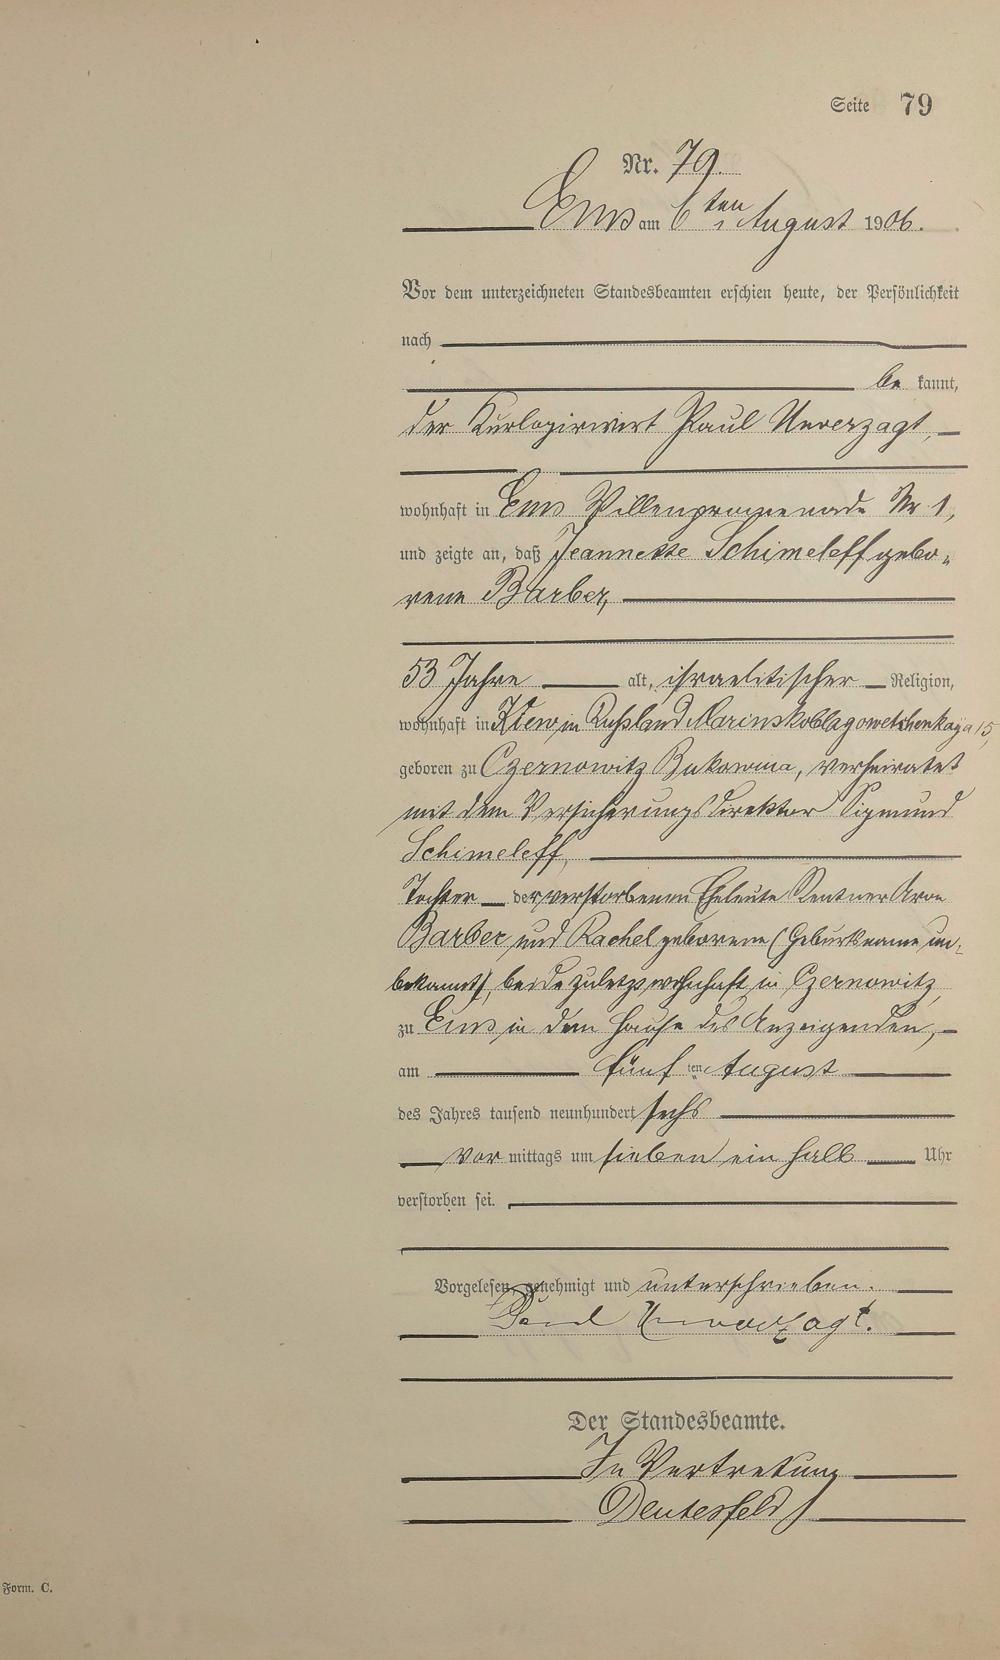 Seite 79
Nr. 79.
Ems am 6ten August 1906.
Vor dem unterzeichneten Standesbeamten erschien heute, der Persönlichkeit
nach
be kannt,
der Kurlogirwirt Paul Unverzagt,
wohnhaft in Ems Villenpromenade Nr 1,
und zeigte an, daß Jeannette Schimeleff gebo-
rene Barber,
53 Jahre alt, israelitischer Religion,
wohnhaft in Kiew in Rußland Marinskoblagowetschenkaya 15,
geboren zu Czernowitz Bukowina, verheiratet
mit dem Versicherungsdirektor Sigmund
Schimeleff,
Tochter der verstorbenen Eheleute Rentner Aron
Barber und Rachel geborene (Geburtsname un-
bekannt), beide zuletzt wohnhaft in Czernowitz,
zu Ems in dem Hause des Anzeigenden,
am fünften August
des Jahres tausend neunhundert sechs
vor mittags um sieben ein halb Uhr
verstorben sei.
Vorgelesen, genehmigt und unterschrieben.
Paul Unverzagt.
Der Standesbeamte.
In Vertretung
Form. C.